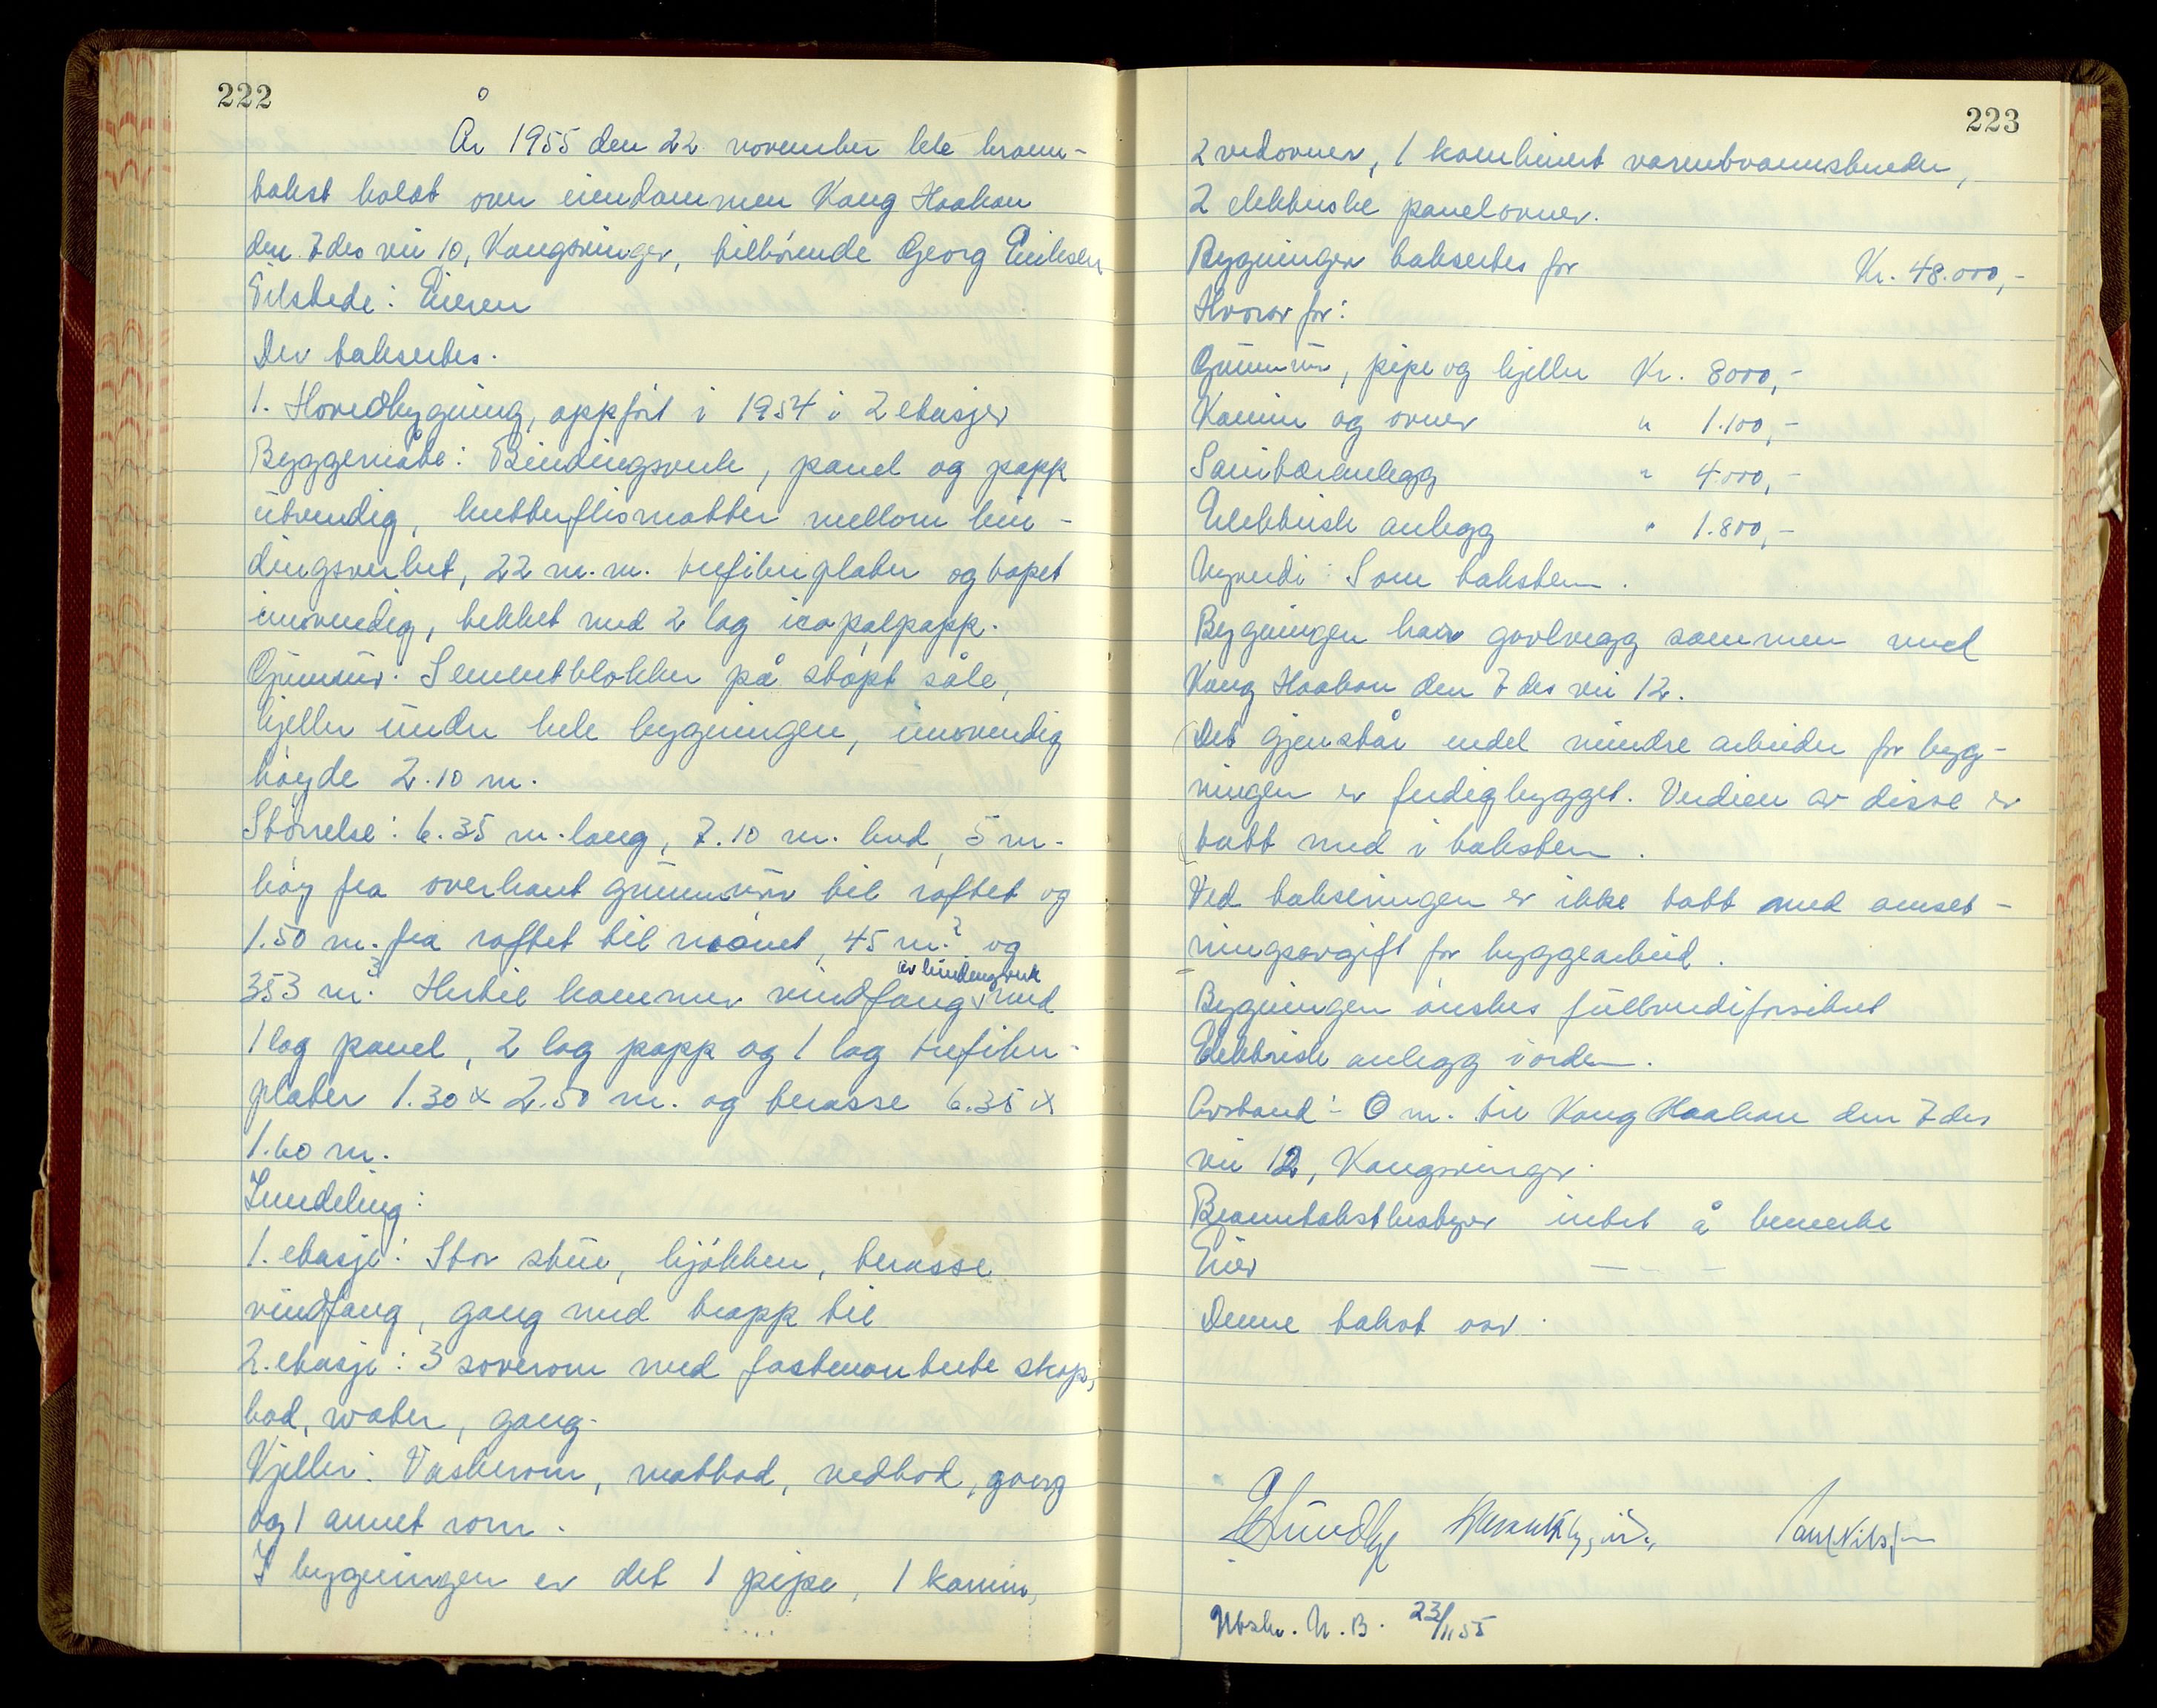 222
År 1955 den 22. november ble brann-
takst holdt over eiendommen Kong Haakon
den 7 des vei 10, Kongsvinger, tilhørende Georg Eriksen
Tilstede: Eieren
Der takseres.
1. Hovedbygning, oppført i 1954 i 2 etasjer
Byggemåte: Bindingsverk, panel og papp
utvendig, kutterflismatter mellom bin-
dingsverket, 22 m.m. trefiberplater og tapet
innvendig, tekket med 2 lag icopalpapp.
Grunnmur: Sementblokker på støpt såle,
kjeller under hele bygningen, innvendig
høyde 2.10 m.
Størrelse: 6.35 m. lang, 7.10 m. bred, 5 m.
høy fra overkant grunnmur til raftet og
1.50 m. fra raftet til mønet, 45 m.² og
353 m.³ Hertil kommer vindfang av bindingsverk med
1 lag panel, 2 lag papp og 1 lag trefiber-
plater 1.30 x 2.50 m. og terasse 6.35 x
1.60 m.
Inndeling:
1. etasje: Stor stue, kjøkken, terasse
vindfang, gang med trapp til
2. etasje: 3 soverom med fastmonterte skap,
bad, water, gang.
Kjeller: Vaskerom, matbod, vedbod, gang
og 1 annet rom.
I bygningen er det 1 pipe, 1 kamin,
223
2 vedovner, 1 kombinert varmtvannsbereder,
2 elektriske panelovner.
Bygningen takseres for Kr. 48.000,-
Hvorav for:
Grunnmur, pipe og kjeller Kr. 8000,-
Kamin og ovner " 1.100,-
Sanitæranlegg " 4.000,-
Elektrisk anlegg " 1.800,-
Nyverdi: Som taksten.
Bygningen har gavlvegg sammen med
Kong Haakon den 7 des vei 12.
Det gjenstår endel mindre arbeider før byg-
ningen er ferdigbygget. Verdien av disse er
tatt med i taksten.
Ved takseringen er ikke tatt med omset-
ningsavgift for byggearbeid.
Bygningen ønskes fullverdiforsikret
Elektrisk anlegg i orden.
Avstand: 0 m. til Kong Haakon den 7 des
vei 12, Kongsvinger.
Branntakstbestyrer intet å bemerke
Eier — " —
Denne takst osv.
Paul Nilsen
Utskr. N.B. 23/11 55